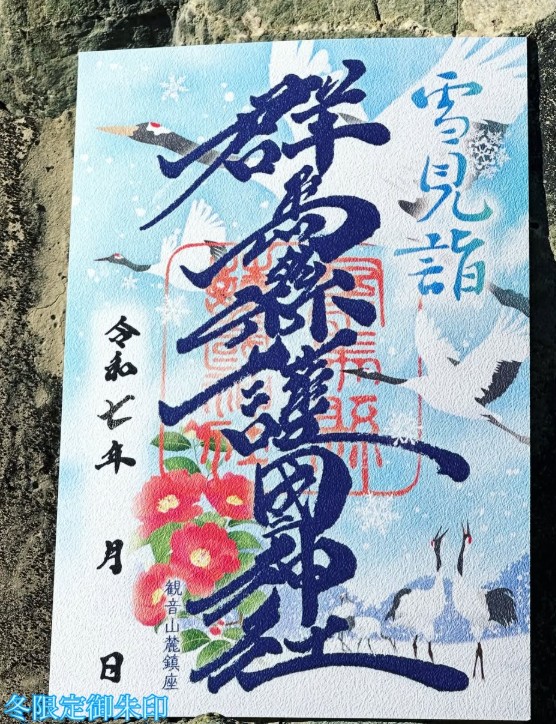 雪見詣
群馬縣護國神社
観音山麓鎮座
令和七年 月 日
冬限定御朱印